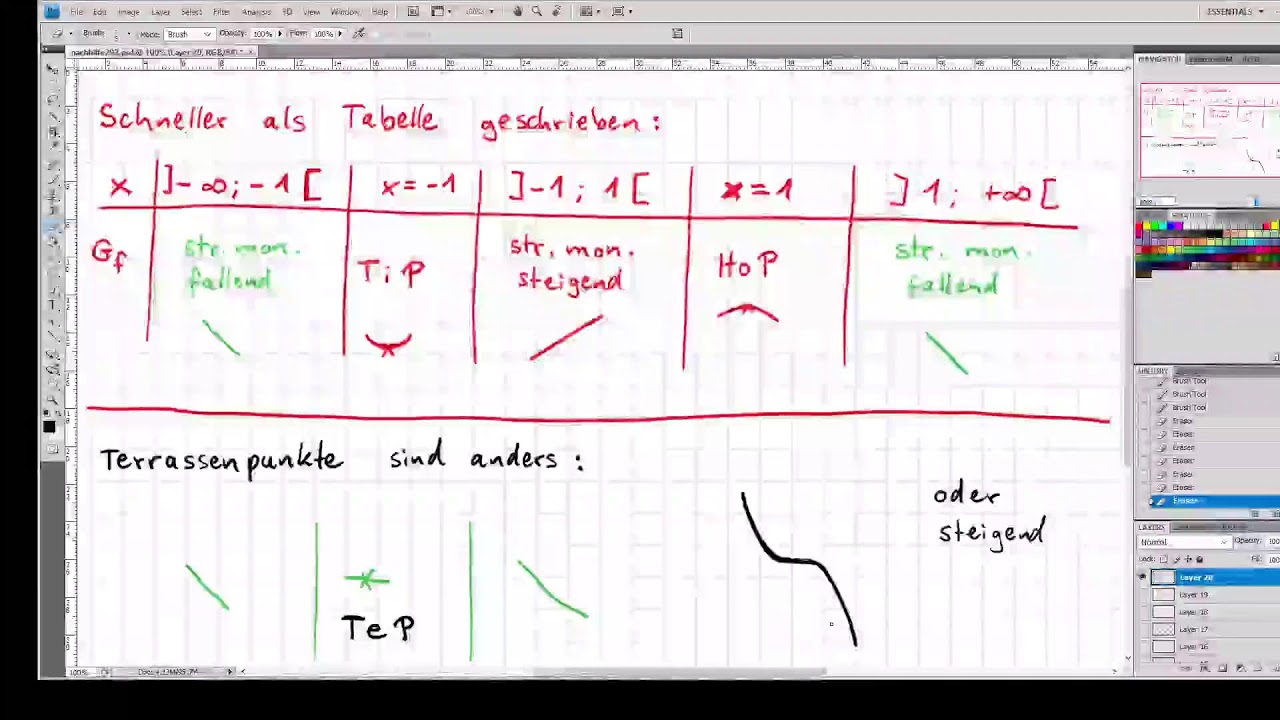 File Edit Image Layer Select Filter Analysis 3D View Window Help 100% ESSENTIALS
Brush: Mode: Brush Opacity: 100% Flow: 100%
Schneller als Tabelle geschrieben:
x ]-∞;-1[ x=-1 ]-1; 1[ x=1 ]1; +∞[
Gf str. mon. fallend TiP str. mon. steigend HoP str. mon. fallend
Terrassenpunkte sind anders:
oder
steigend
TeP
100%
NAVIGATOR
HISTORY
Brush Tool
Brush Tool
Brush Tool
Eraser
Eraser
Eraser
Eraser
Eraser
Eraser
Eraser
LAYERS
Normal Opacity: 100
Lock: Fill: 100
Layer 20
Layer 19
Layer 18
Layer 17
Layer 16